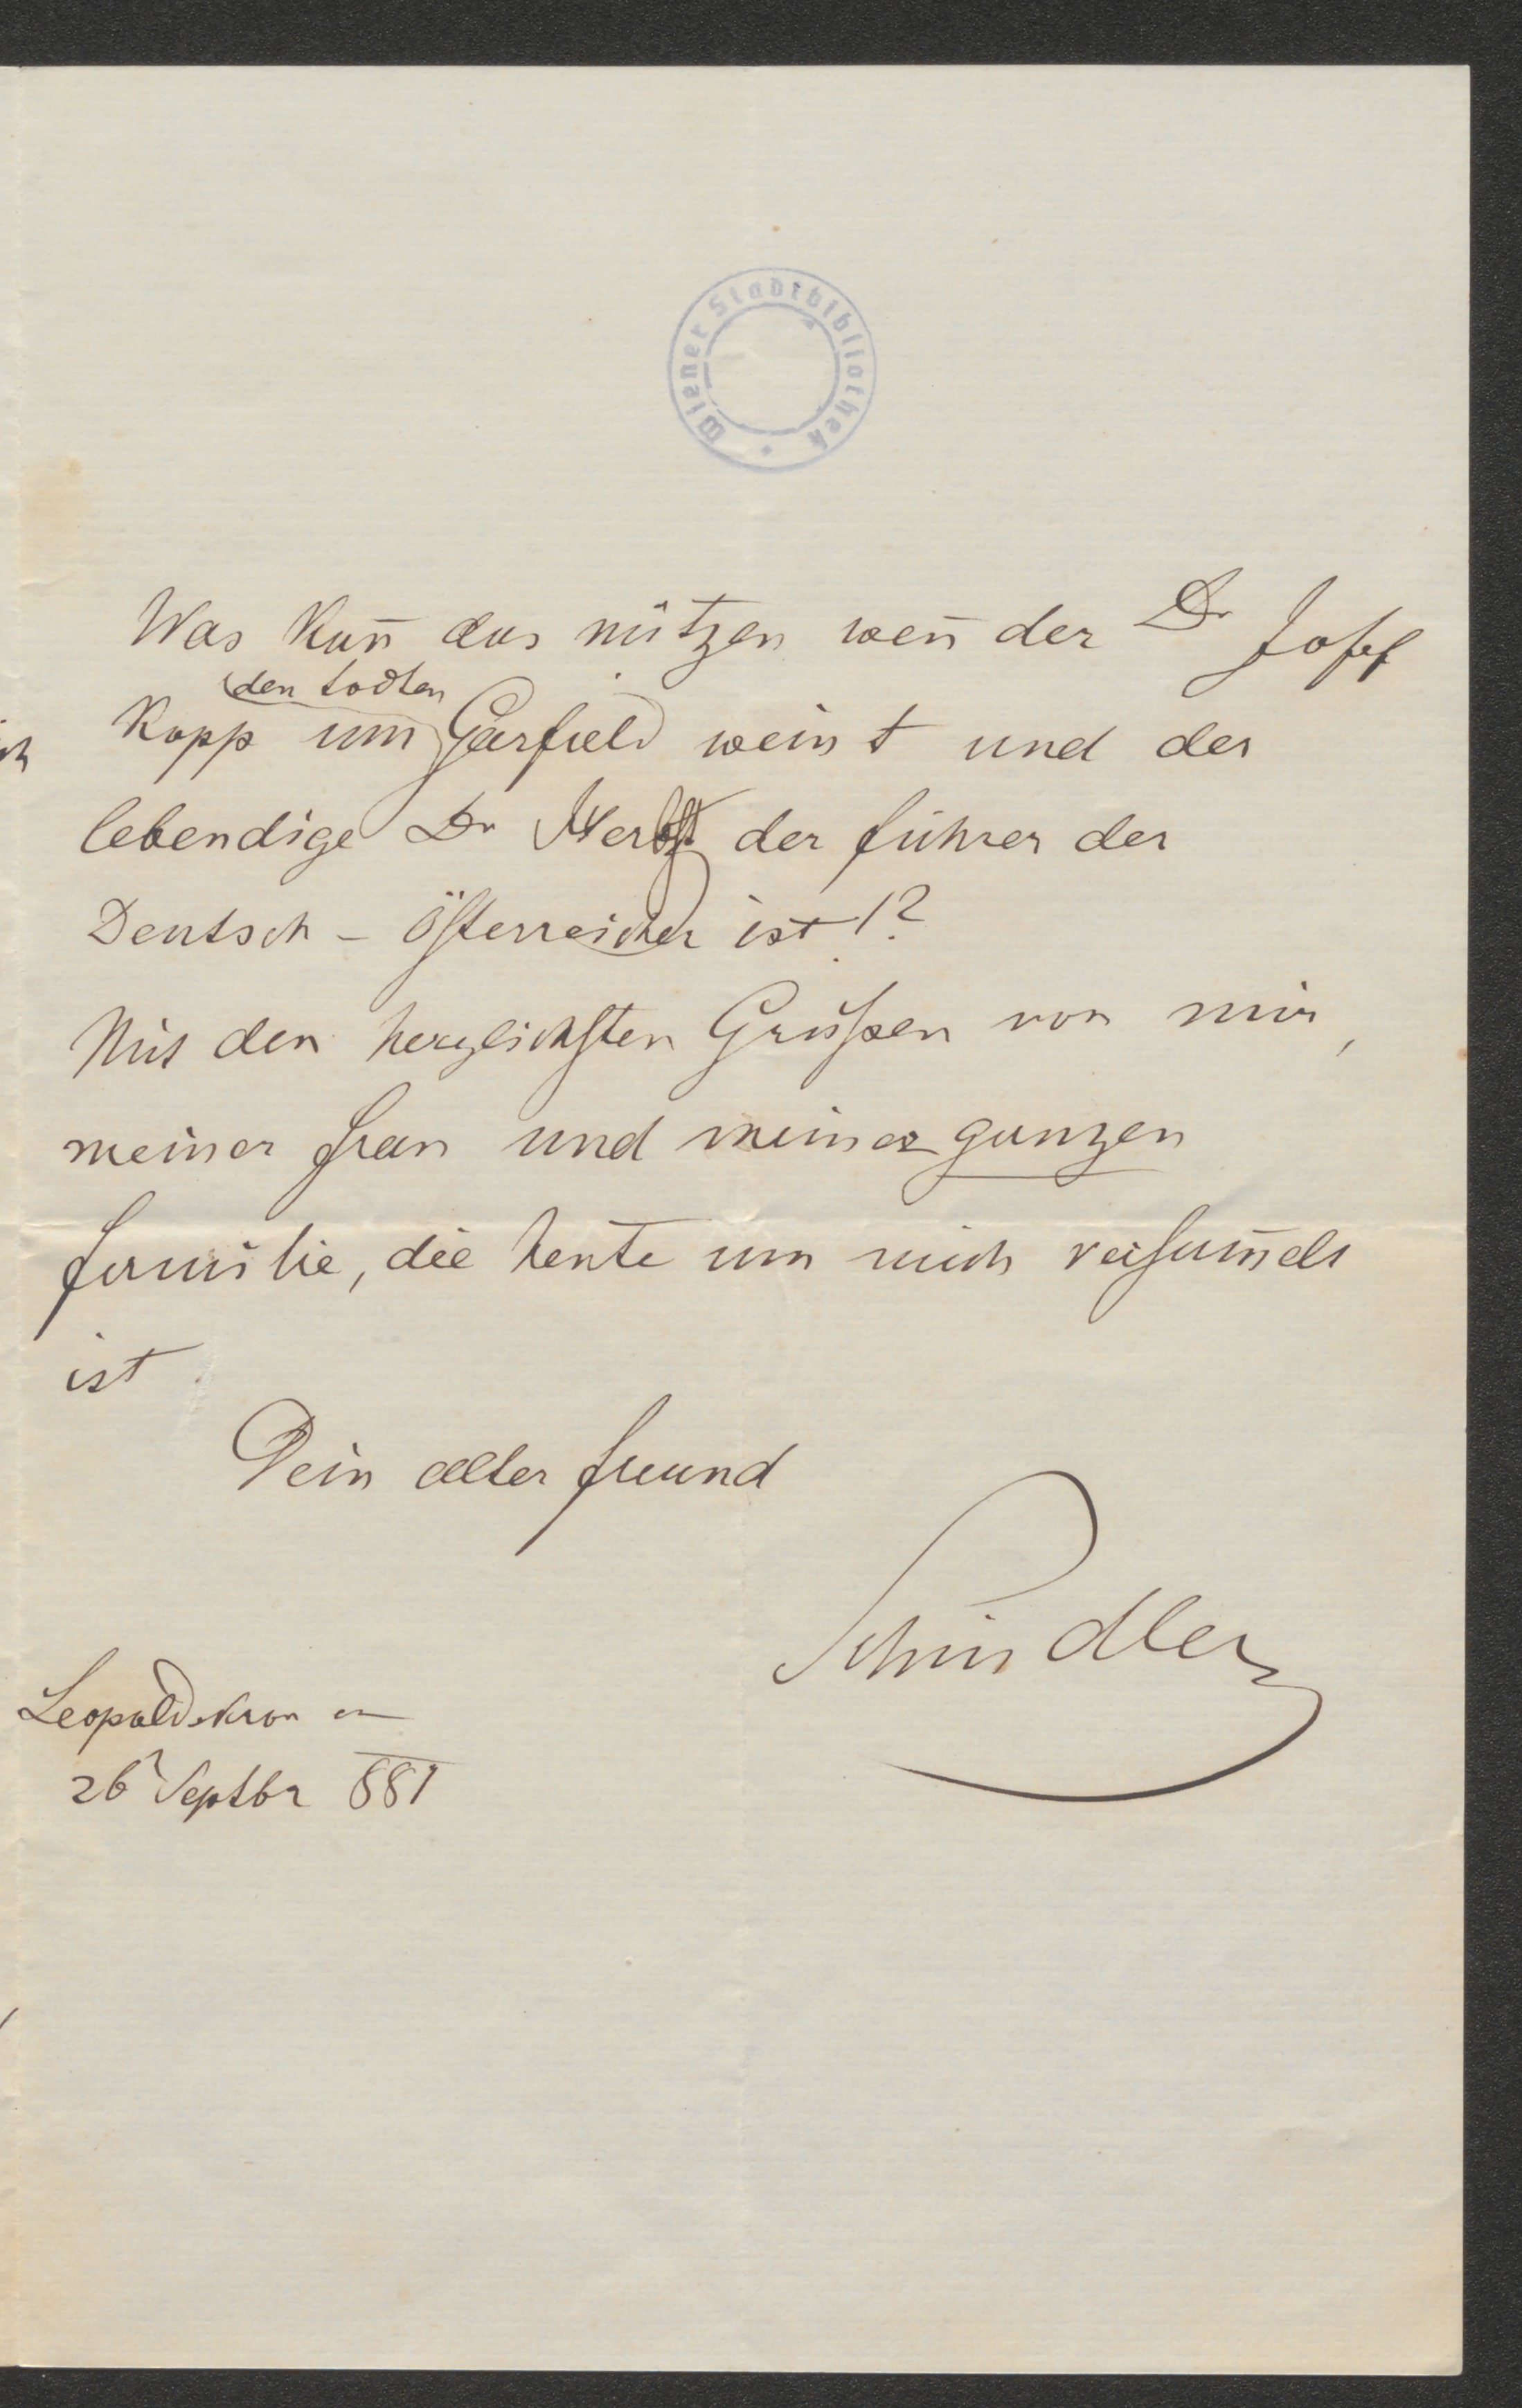 Wiener Stadtbibliothek
Was kan̄ das nützen wen̄ der Dr Josef
den todten
Kopp um Garfield weint und der
lebendige Dr Herbst der Führer der
Deutsch - Österreicher ist!?
Mit den herzlichsten Grüßen von mir,
meiner Frau und meiner ganzen
Familie, die heute um mich versam̄elt
ist.
Dein alter Freund
Schindler
Leopoldskron
26 Septbr 881